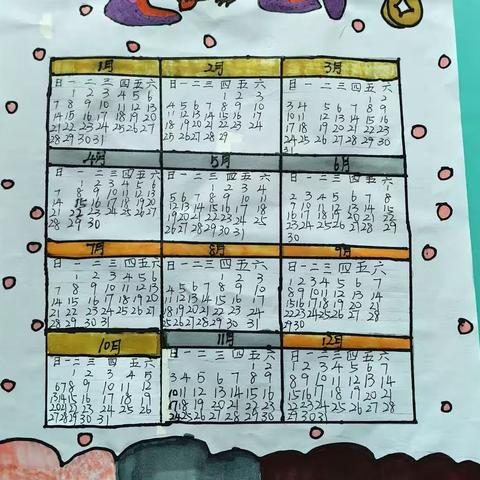 1月
日一二三四五六
1 2 3 4 5 6
7 8 9 10 11 12 13
14 15 16 17 18 19 20
21 22 23 24 25 26 27
28 29 30 31
2月
日一二三四五六
1 2 3
4 5 6 7 8 9 10
11 12 13 14 15 16 17
18 19 20 21 22 23 24
25 26 27 28 29
3月
日一二三四五六
1 2
3 4 5 6 7 8 9
10 11 12 13 14 15 16
17 18 19 20 21 22 23
24 25 26 27 28 29 30
31
4月
日一二三四五六
1 2 3 4 5 6
7 8 9 10 11 12 13
14 15 16 17 18 19 20
21 22 23 24 25 26 27
28 29 30
5月
日一二三四五六
1 2 3 4
5 6 7 8 9 10 11
12 13 14 15 16 17 18
19 20 21 22 23 24 25
26 27 28 29 30 31
6月
日一二三四五六
1
2 3 4 5 6 7 8
9 10 11 12 13 14 15
16 17 18 19 20 21 22
23 24 25 26 27 28 29
30
7月
日一二三四五六
1 2 3 4 5 6
7 8 9 10 11 12 13
14 15 16 17 18 19 20
21 22 23 24 25 26 27
28 29 30 31
8月
日一二三四五六
1 2 3
4 5 6 7 8 9 10
11 12 13 14 15 16 17
18 19 20 21 22 23 24
25 26 27 28 29 30 31
9月
日一二三四五六
1 2 3 4 5 6 7
8 9 10 11 12 13 14
15 16 17 18 19 20 21
22 23 24 25 26 27 28
29 30
10月
日一二三四五六
1 2 3 4 5
6 7 8 9 10 11 12
13 14 15 16 17 18 19
20 21 22 23 24 25 26
27 28 29 30 31
11月
日一二三四五六
1 2
3 4 5 6 7 8 9
10 11 12 13 14 15 16
17 18 19 20 21 22 23
24 25 26 27 28 29 30
12月
日一二三四五六
1 2 3 4 5 6 7
8 9 10 11 12 13 14
15 16 17 18 19 20 21
22 23 24 25 26 27 28
29 30 31